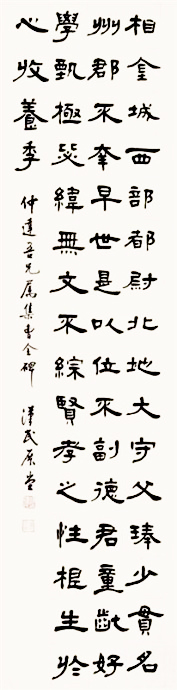 相金城西部都尉北地大守父琫少貫名
州郡不幸早世是以位不副德君童齔好
學甄極毖緯無文不綜賢孝之性根生於
心收養季
仲達吾兄屬集曹全碑 漢民展堂